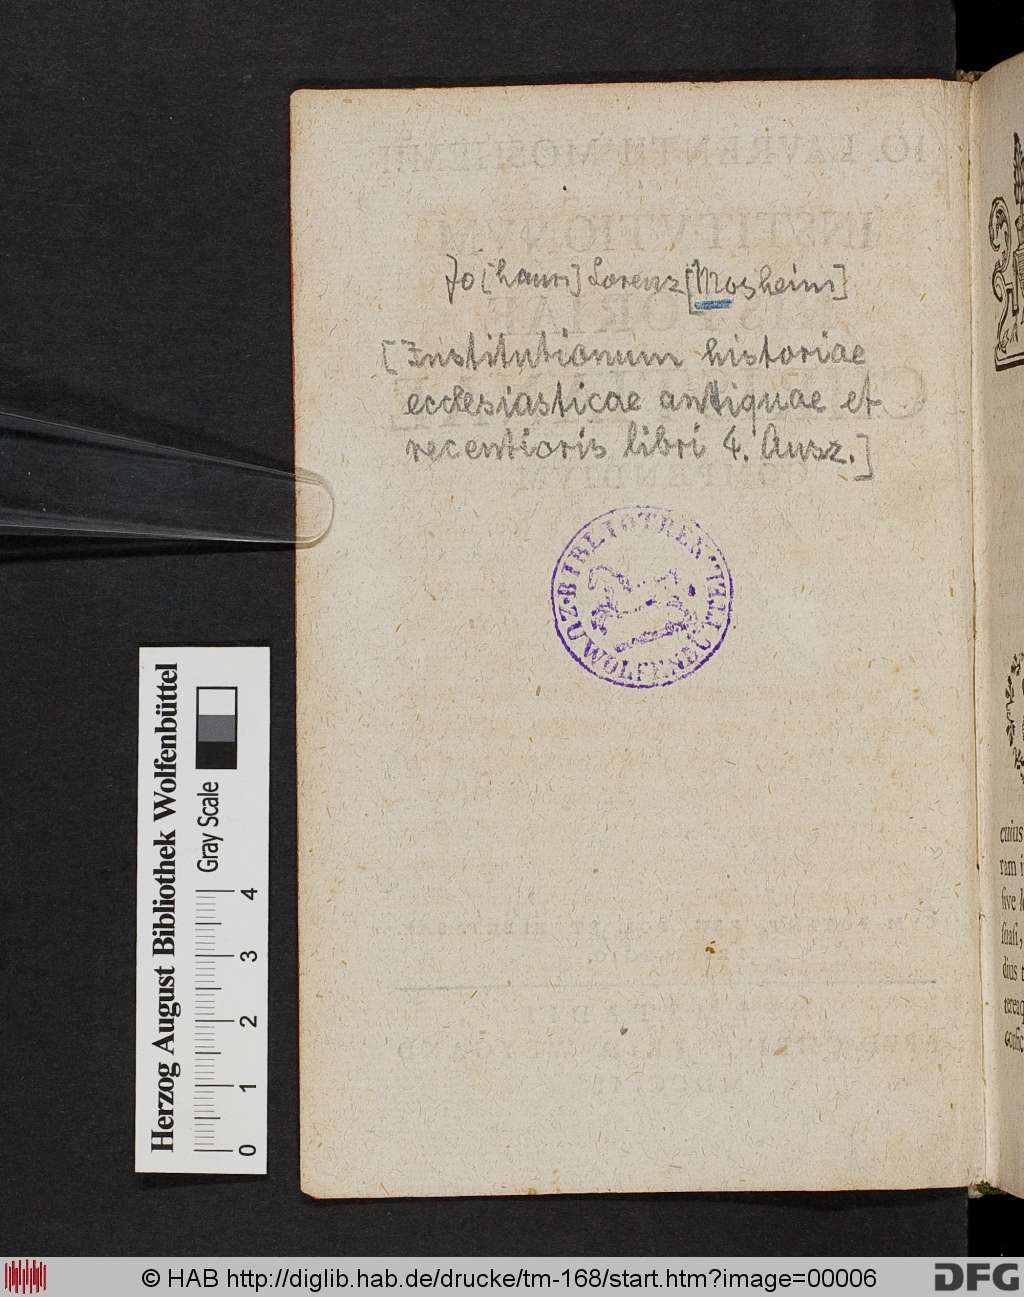 Jo[hann] Lorenz [Mosheim]
[Institutionum historiae
ecclesiasticae antiquae et
recentioris libri 4. Ausz.]
BIBLIOTHEK
ZU WOLFENBÜTTEL.
Herzog August Bibliothek Wolfenbüttel
Gray Scale
0 1 2 3 4
IO. LAVRENTII MOSHEMII
INSTITVTIONVM
HISTORIAE
COMPENDIVM
cuius
ram i
sive
dius
© HAB http://diglib.hab.de/drucke/tm-168/start.htm?image=00006
DFG